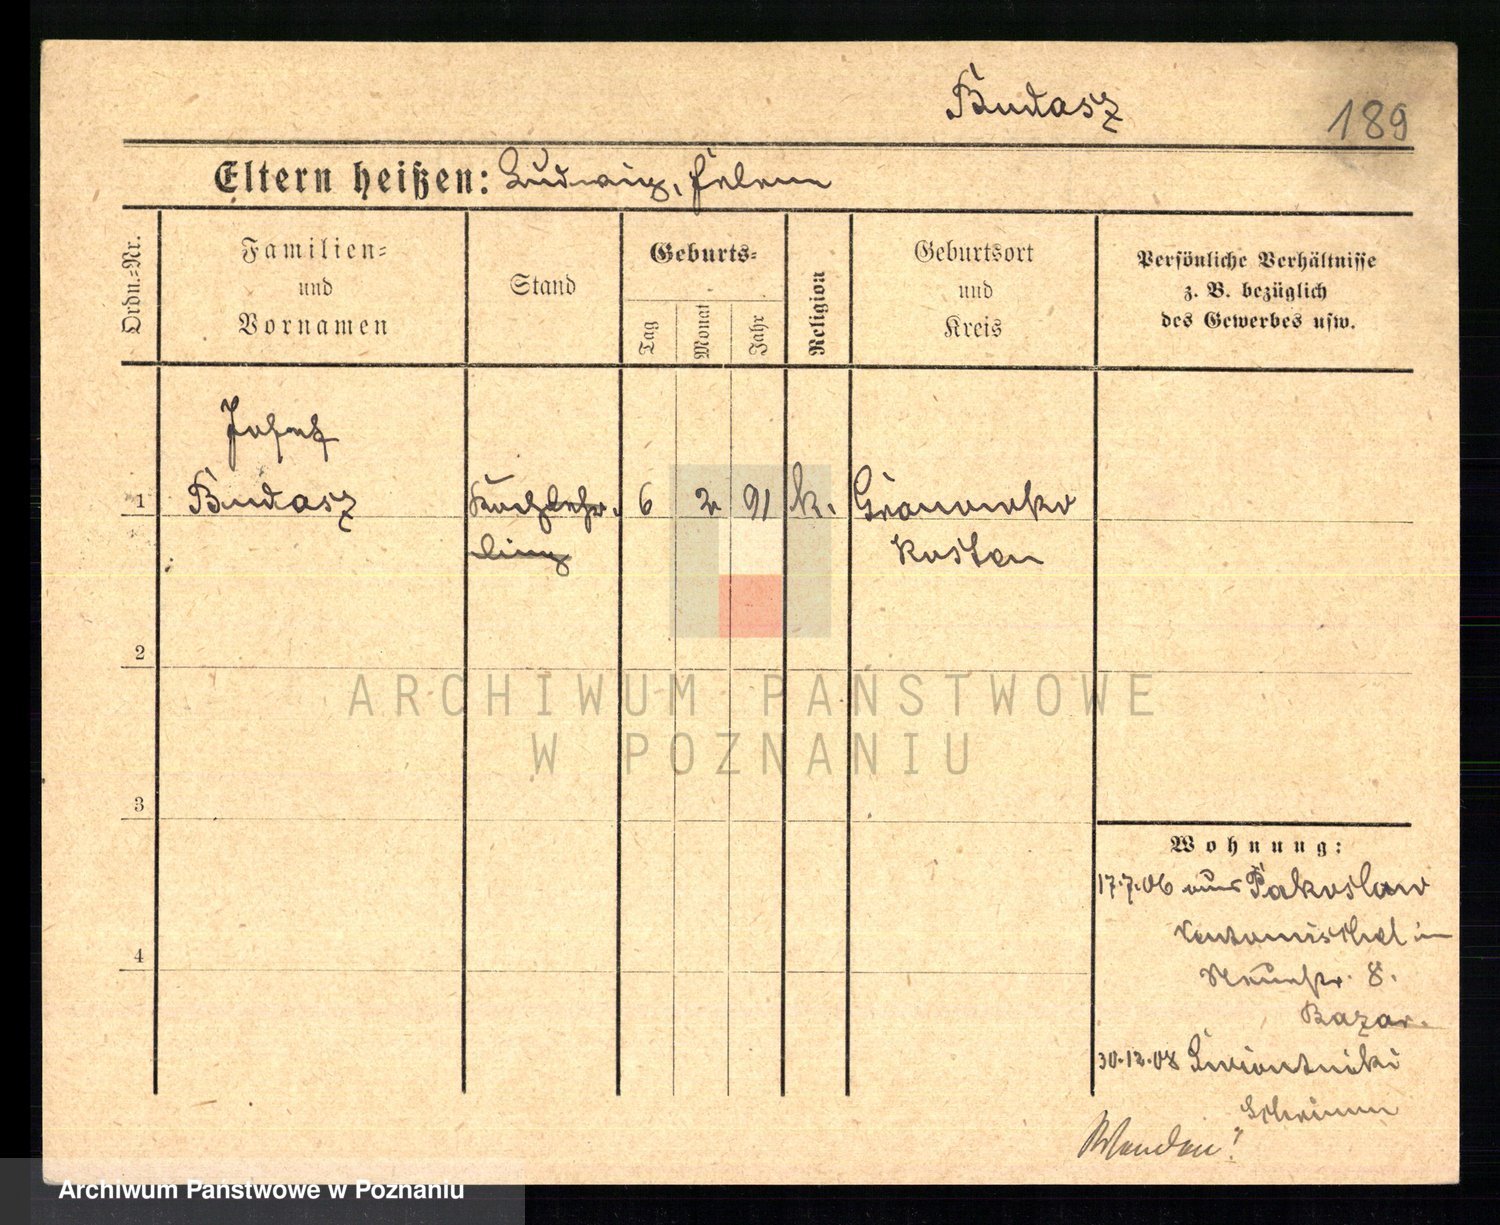 Budasz
189
Eltern heißen: Ludwig, Helene
Ordn.-Nr.
Familien-
und
Vornamen
Stand
Geburts-
Tag
Monat
Jahr
Religion
Geburtsort
und
Kreis
Persönliche Verhältnisse
z. B. bezüglich
des Gewerbes usw.
Josef
1 Budasz Kochlehr- 6 2 91 k. Granowko
ling Kosten
2
3
4
Wohnung:
17.7.06 aus Pakoslaw
Neutomischel in
Neuestr. 8.
Bazar.
30.12.08
Schrimm
ARCHIWUM PAŃSTWOWE
W POZNANIU
Archiwum Państwowe w Poznaniu